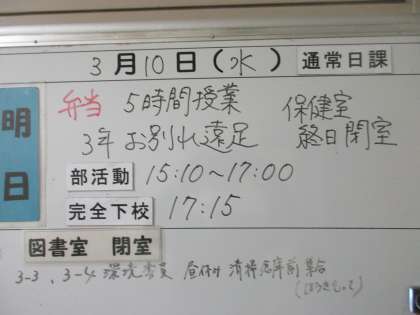 3月10日(水) 通常日課
明日
弁当 5時間授業 保健室
3年 お別れ遠足 終日閉室
部活動 15:10～17:00
完全下校 17:15
図書室 閉室
3-3、3-4 環境委員 昼休み 清掃庫前集合